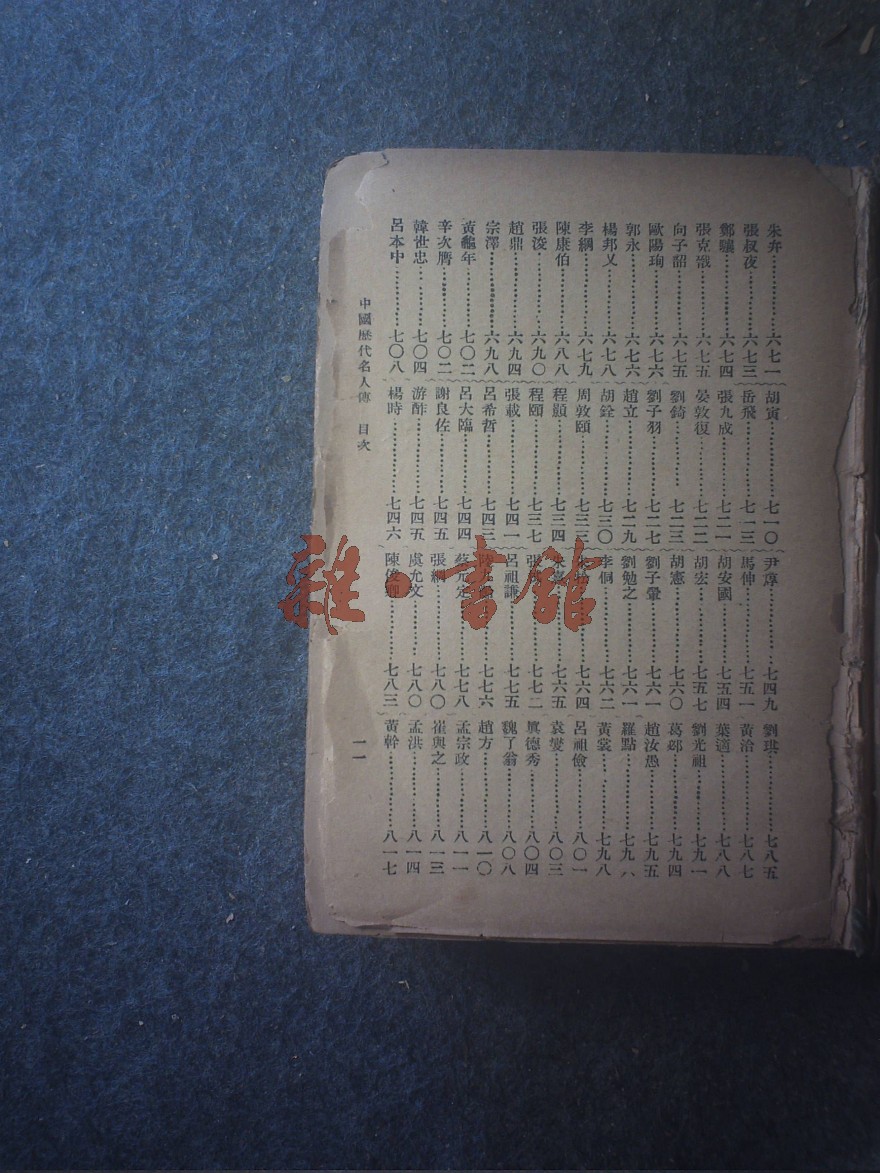 朱弁…………六七一
張叔夜…………六七三
鄭驤…………六七四
張克戩…………六七五
向子韶…………六七五
歐陽珣…………六七六
郭永…………六七六
楊邦乂…………六七八
李綱…………六七九
陳康伯…………六八八
張浚…………六九〇
趙鼎…………六九四
宗澤…………六九八
黃龜年…………七〇二
辛次膺…………七〇二
韓世忠…………七〇四
呂本中…………七〇八
胡寅…………七一〇
岳飛…………七一三
張九成…………七二一
晏敦復…………七二二
劉錡…………七二三
劉子羽…………七二七
趙立…………七二九
胡銓…………七三〇
周敦頤…………七三三
程顥…………七三四
程頤…………七三七
張載…………七四一
呂希哲…………七四三
呂大臨…………七四四
謝良佐…………七四五
游酢…………七四五
楊時…………七四六
尹焞…………七四九
馬伸…………七五一
胡安國…………七五四
胡宏…………七五七
胡憲…………七六〇
劉子翬…………七六一
劉勉之…………七六一
李侗…………七六二
朱…………七六四
朱…………七六五
張…………七七二
呂祖謙…………七七五
…………七七六
蔡元定…………七七八
張綱…………七八〇
虞允文…………七八〇
陳俊卿…………七八三
劉珙…………七八五
黃洽…………七八七
葉適…………七八八
劉光祖…………七九一
葛邲…………七九四
趙汝愚…………七九五
羅點…………七九六
黃裳…………七九八
呂祖儉…………八〇一
袁燮…………八〇三
眞德秀…………八〇四
魏了翁…………八〇八
趙方…………八一〇
孟宗政…………八一一
崔與之…………八一三
孟洪…………八一四
黃幹…………八一七
中國歷代名人傳 目次
一一
雜·書館